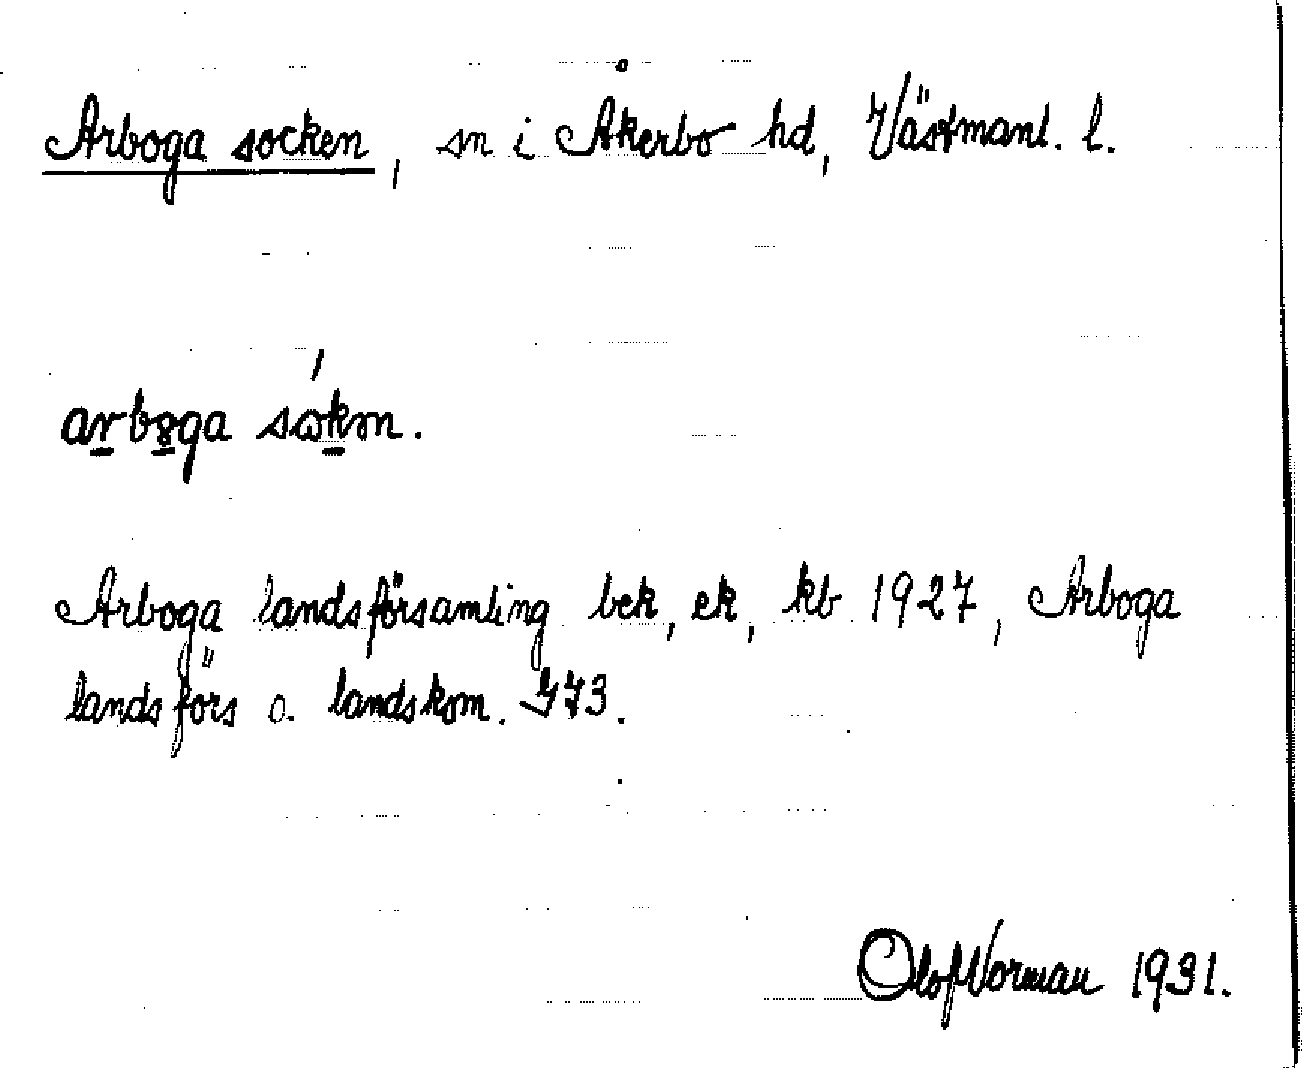 Arboga socken, sn i Åkerbo hd, Västmanl. l.
arboga sokm.
Arboga landsförsamling bek, ek, kb 1927, Arboga
landsförs o. landskom. J73.
Olof Norman 1931.